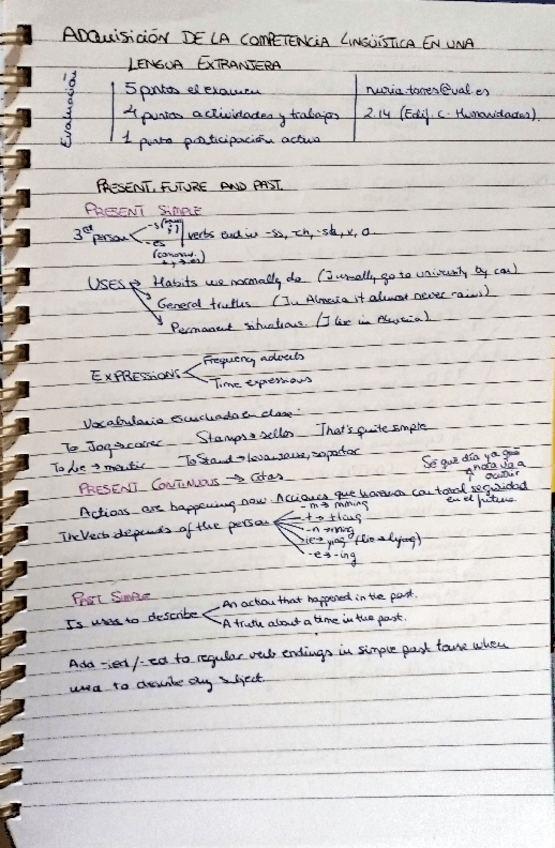 ADQUISICIÓN DE LA COMPETENCIA LINGÜÍSTICA EN UNA
LENGUA EXTRANJERA
Evaluación
5 pntos el examen
4 puntos actividades y trabajos
1 punto participación activa
nuria.torres@ual.es
2.14 (Edif. C. Humanidades).
PRESENT, FUTURE AND PAST.
PRESENT SIMPLE
3rd person
-s
-es
verbs end in -ss, -ch, -sh, x, o
USES → Habits we normally do (I usually go to university by car)
General truths (In Almeria it almost never rains)
Permanent situations. (I live in Almería)
EXPRESSIONS
Frequency adverbs
Time expressions
Vocabulario escuchado en clase:
To Jog → correr Stamps → sellos That's quite simple
To Lie → mentir To Stand → levantarse, soportar
PRESENT CONTINUOUS → Citas
Sé qué día y a qué
hora va a
ocurrir
Actions are happening now. Acciones que haremos con total seguridad
en el futuro
The Verb depends of the person
-m → mming
-t → tting
-n → nning
ie → ying (lie → lying)
-e → -ing
PAST SIMPLE
Is used to describe
An action that happened in the past.
A truth about a time in the past.
Add -ied/-ed to regular verb endings in simple past tense when
used to describe any subject.